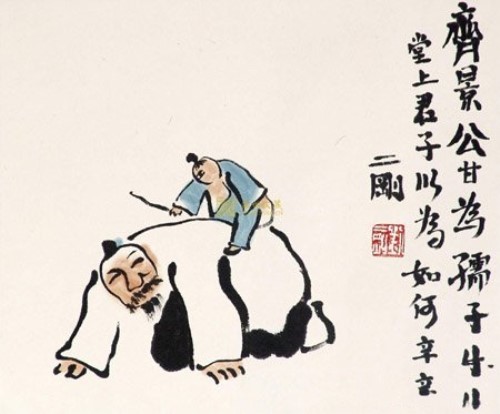 齊景公甘為孺子牛
堂上君子以為如何辛
二剛